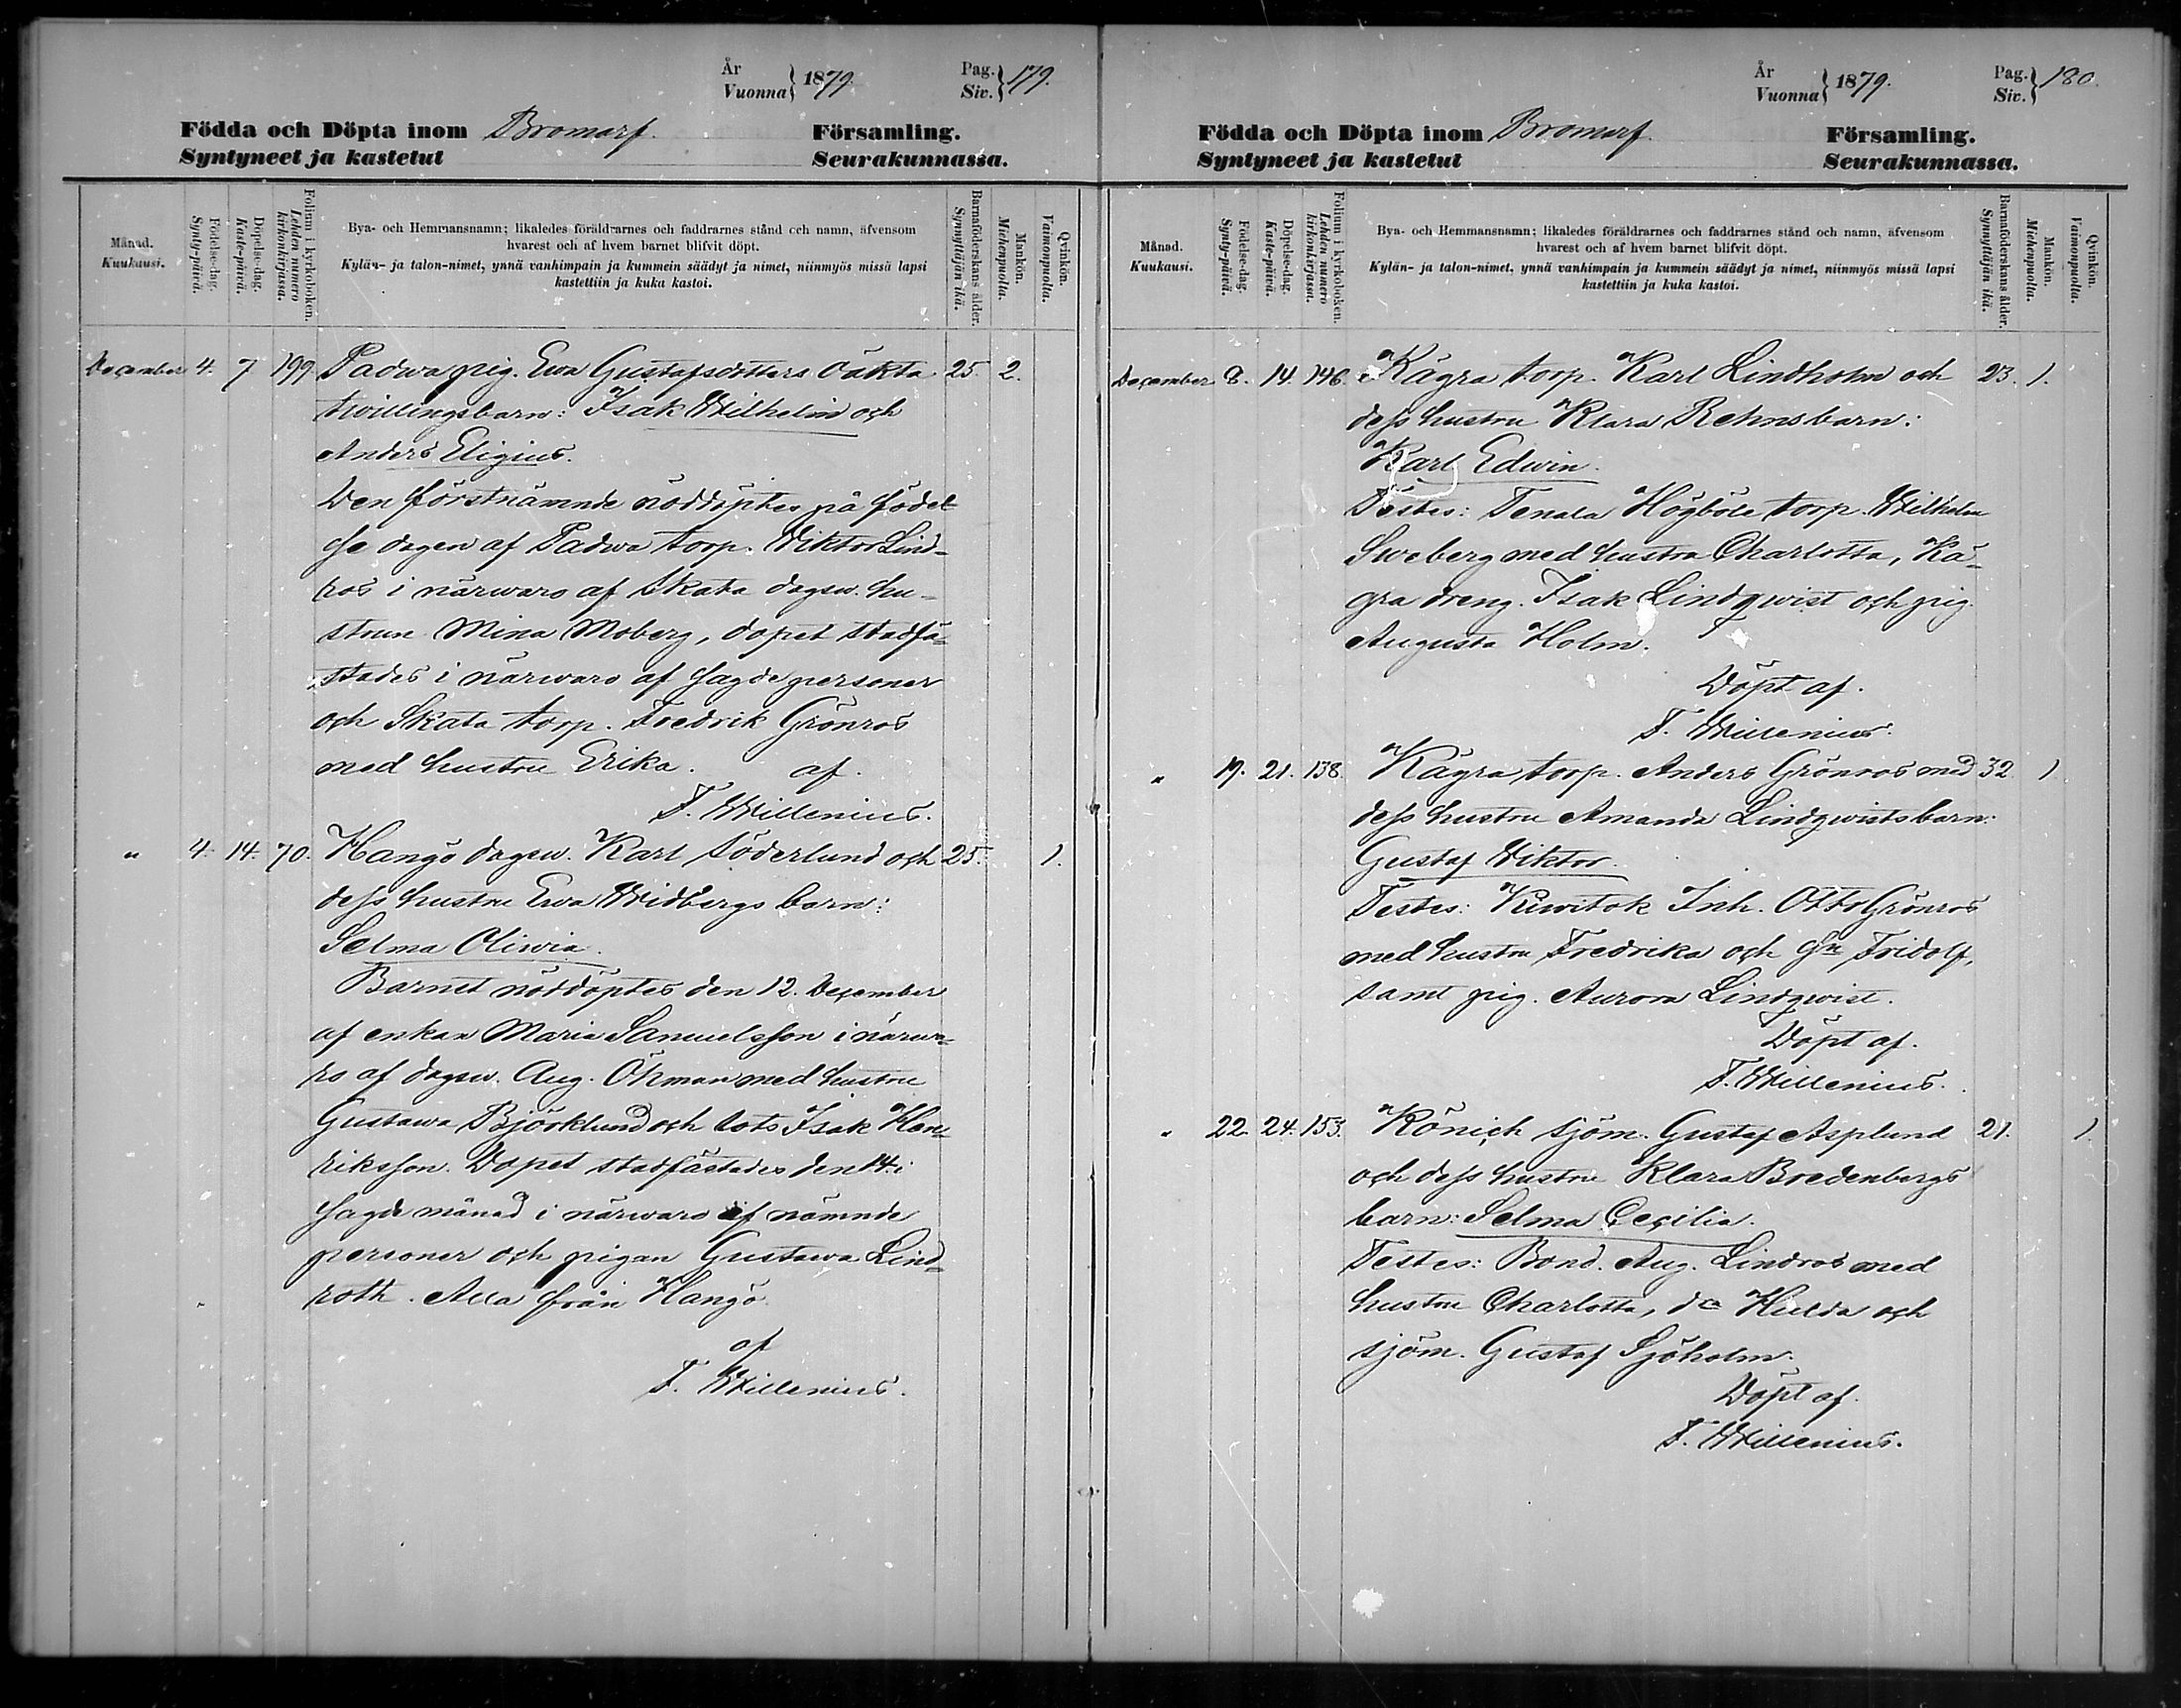 År
Vuonna } 1879.
Pag.
Siv. } 179.
Födda och Döpta inom Bromarf Församling.
Syntyneet ja kastetut Seurakunnassa.
Månad.
Kuukausi.
Födelse-dag.
Synty-päivä.
Döpelse-dag.
Kaste-päivä.
Folium i kyrkoboken.
Lehden numero
kirkonkirjassa.
Bya- och Hemmansnamn; likaledes föräldrarnes och faddrarnes stånd och namn, äfvensom
hvarest och af hvem barnet blifvit döpt.
Kylän- ja talon-nimet, ynnä vanhimpain ja kummein säädyt ja nimet, niinmyös missä lapsi
kastettiin ja kuka kastoi.
Barnaföderskans ålder.
Synnyttäjän ikä.
Mankön.
Miehenpuolta.
Qvinkön.
Vaimonpuolta.
December 4. 7 199 Padwa pig. Ewa Gustafsdotters oäkta 25. 2.
twillingsbarn: Isak Wilhelm och
Anders Eligius.
Den förstnämnde nöddöptes på födel-
se dagen af Padwa torp. Viktor Lind-
ros i närwaro af Skata dagsw. hu-
strun Mina Moberg, dopet stadfä-
stades i närwaro af sagde personer
och Skata torp. Fredrik Grönros
med hustru Erika. af.
F. Willenius.
" 4. 14. 70. Hangö dagsw. Karl Söderlund och 25. 1.
dess hustru Ewa Widbergs barn:
Selma Oliwia.
Barnet nöddöptes den 12. December
af enkan Maria Samuelsson i närwa-
ro af dagsw. Aug. Öhman med hustru
Gustawa Björklund och lots Isak Hen-
riksson. Dopet stadfästades den 14. i
sagde månad i närwaro af nämnde
personer och pigan Gustawa Lind-
roth. Alla från Hangö.
af
F. Willenius.
År
Vuonna } 1879.
Pag.
Siv. } 180.
Födda och Döpta inom Bromarf Församling.
Syntyneet ja kastetut Seurakunnassa.
Månad.
Kuukausi.
Födelse-dag.
Synty-päivä.
Döpelse-dag.
Kaste-päivä.
Folium i kyrkoboken.
Lehden numero
kirkonkirjassa.
Bya- och Hemmansnamn; likaledes föräldrarnes och faddrarnes stånd och namn, äfvensom
hvarest och af hvem barnet blifvit döpt.
Kylän- ja talon-nimet, ynnä vanhimpain ja kummein säädyt ja nimet, niinmyös missä lapsi
kastettiin ja kuka kastoi.
Barnaföderskans ålder.
Synnyttäjän ikä.
Mankön.
Miehenpuolta.
Qvinkön.
Vaimonpuolta.
December 8. 14. 146. Kägra torp. Karl Lindholm och 23. 1.
dess hustru Klara Rehns barn:
Karl Edwin.
Testes: Tenala Högböle torp. Wilhelm
Sweberg med hustru Charlotta, Kä-
gra dreng. Isak Lindqwist och pig.
Augusta Holm.
Döpt af.
F. Willenius.
" 19. 21. 138. Kägra torp. Anders Grönros med 32. 1
dess hustru Amanda Lindqwists barn:
Gustaf Wiktor.
Testes: Kiwitok Inh. Otto Grönros
med hustru Fredrika och Fridolf,
samt pig. Aurora Lindqwist.
Döpt af.
F. Willenius.
" 22. 24. 153. Könich sjöm. Gustaf Asplund 21. 1.
och dess hustru Klara Bredenbergs
barn: Selma Cecilia.
Testes: Bond. Aug. Lindros med
hustru Charlotta, Hulda och
sjöm. Gustaf Sjöholm.
Döpt af.
F. Willenius.